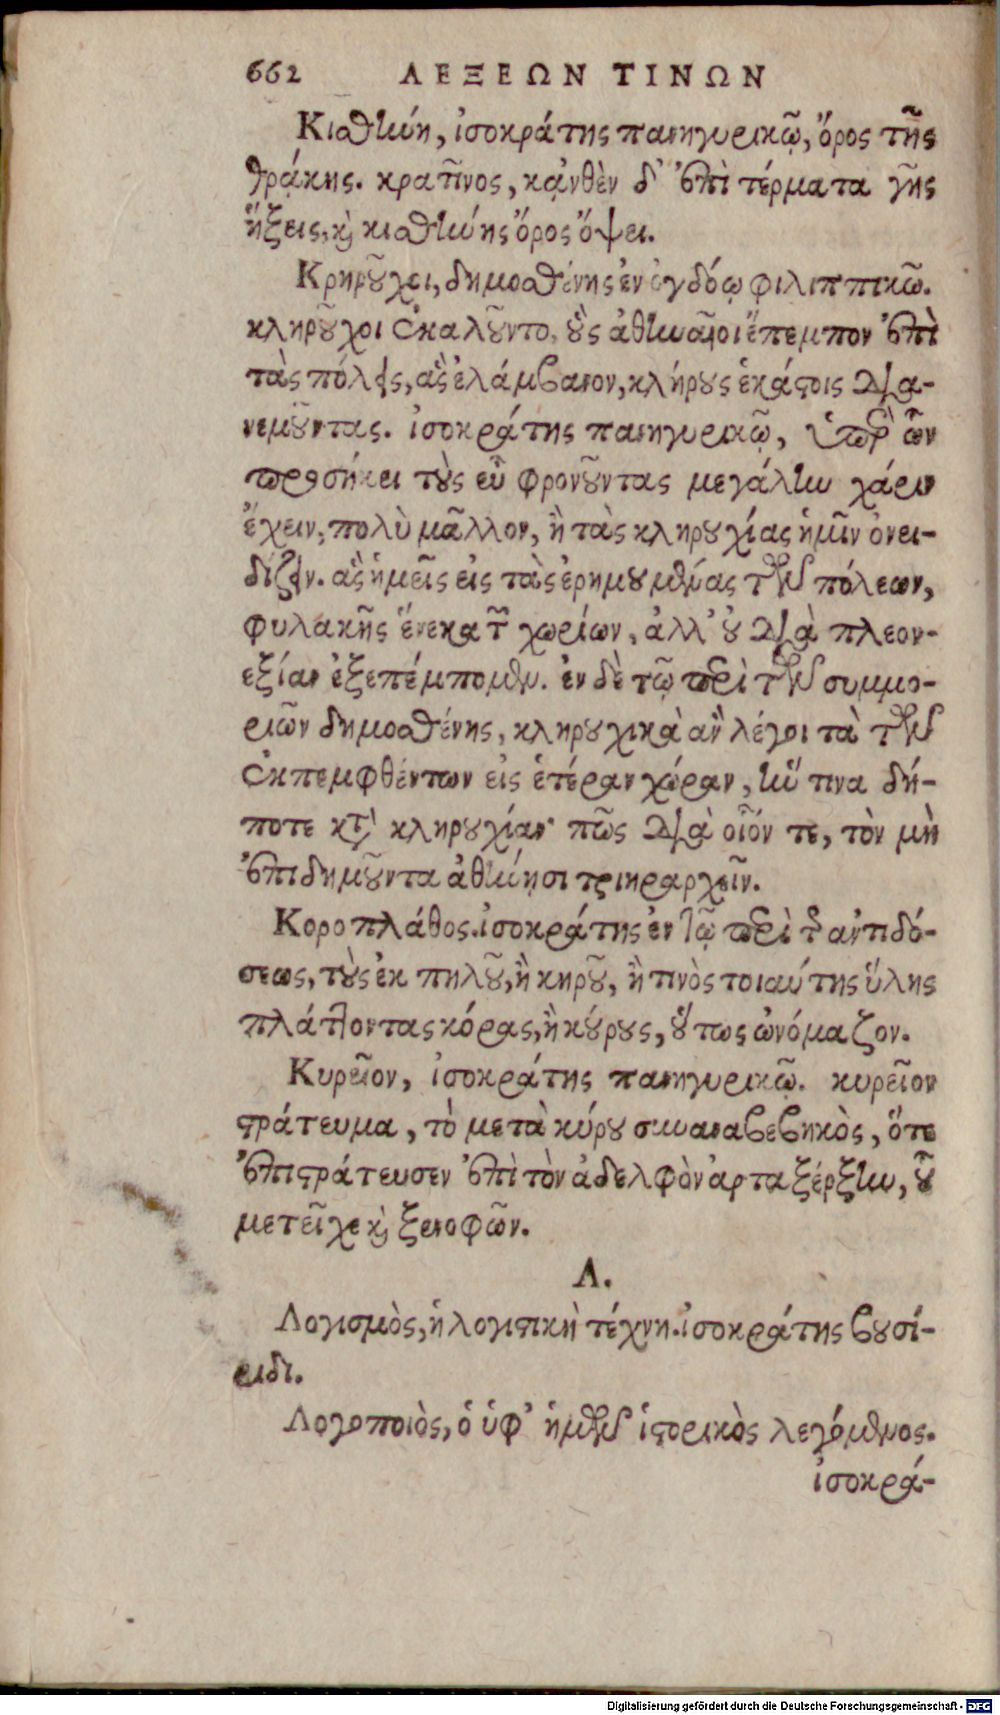 662 ΛΕΞΕΩΝ ΤΙΝΩΝ
Κισθήνη, ἰσοκράτης πανηγυρικῷ, ὄρος τῆς
θρᾴκης. κρατῖνος, κᾀνθὲν δ' ἐπὶ τέρματα γῆς
ἥξεις, καὶ κισθήνης ὄρος ὄψει.
Κρηροῦχοι, δημοσθένης ἐν ὀγδόῳ φιλιππικῶ.
κληροῦχοι ἐκαλοῦντο, οὓς ἀθηναῖοι ἔπεμπον ἐπὶ
τὰς πόλεις, ἃς ἐλάμβανον, κλήρους ἑκάστοις δια-
νεμοῦντας. ἰσοκράτης πανηγυρικῷ, ὑπὲρ ὧν
προσήκει τοὺς εὖ φρονοῦντας μεγάλην χάριν
ἔχειν, πολὺ μᾶλλον, ἢ τὰς κληρουχίας ἡμῖν ὀνει-
δίζειν. ἃς ἡμεῖς εἰς τὰς ἐρημουμένας τῶν πόλεων,
φυλακῆς ἕνεκα τῶν χωρίων, ἀλλ' οὐ διὰ πλεον-
εξίαν ἐξεπέμπομεν. ἐν δὲ τῷ περὶ τῶν συμμο-
ριῶν δημοσθένης, κληρουχικὰ ἂν λέγοι τὰ τῶν
ἐκπεμφθέντων εἰς ἑτέραν χώραν, ἥν τινα δή-
ποτε κατὰ κληρουχίαν· πῶς διὰ οἷόν τε, τὸν μὴ
ἐπιδημοῦντα ἀθήνησι τριηραρχεῖν.
Κοροπλάθος. ἰσοκράτης ἐν τῷ περὶ τῆς ἀντιδό-
σεως, τοὺς ἐκ πηλοῦ, ἢ κηροῦ, ἢ τινὸς τοιαύτης ὕλης
πλάττοντας κόρας, ἢ κούρους, οὕτως ὠνόμαζον.
Κυρεῖον, ἰσοκράτης πανηγυρικῷ. κυρεῖον
στράτευμα, τὸ μετὰ κύρου συναναβεβηκὸς, ὅτε
ἐπιστράτευσεν ἐπὶ τὸν ἀδελφὸν ἀρταξέρξην, οὗ
μετεῖχε καὶ ξενοφῶν.
Λ.
Λογισμὸς, ἡ λογιστικὴ τέχνη. ἰσοκράτης βουσί-
ριδι.
Λογοποιὸς, ὁ ὑφ' ἡμῶν ἱστορικὸς λεγόμενος.
ἰσοκρά-
Digitalisierung gefördert durch die Deutsche Forschungsgemeinschaft - DFG